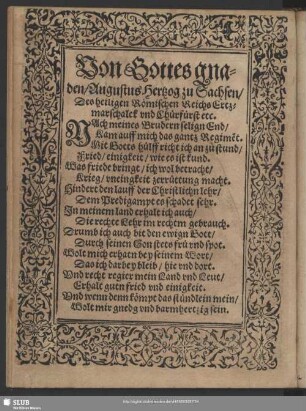 Von Gottes gna-
den/Augustus Hertzog zu Sachsen/
Des heiligen Römischen Reichs Ertz-
marschalck vnd Chürfürst etc.
NAch meines Brudern selign End/
Kam auff mich das gantz Regimēt.
Mit Gotts hülff richt ich an zu stund/
Fried/einigkeit/wie es ist kund.
Was friede bringt/ich wol betracht/
Krieg/vneinigkeit zerrüttung macht.
Hindert den lauff der Christlichn lehr/
Dem Predigampt es schadet sehr.
In meinem land erhalt ich auch/
Die rechte Lehr im rechtem gebrauch.
Drumb ich auch bit den ewign Gott/
Durch seinen Son stets frü vnd spot.
Wolt mich erhaltn bey seinem Wort/
Das ich darbey bleib/hie vnd dort.
Vnd recht regier mein Land vnd Leut/
Erhalt guten fried vnd einigkeit.
Vnd wenn denn kömpt das stündlein mein/
Wolt mir gnedg vnd barmhertzig sein.
SLUB
Wir führen Wissen.